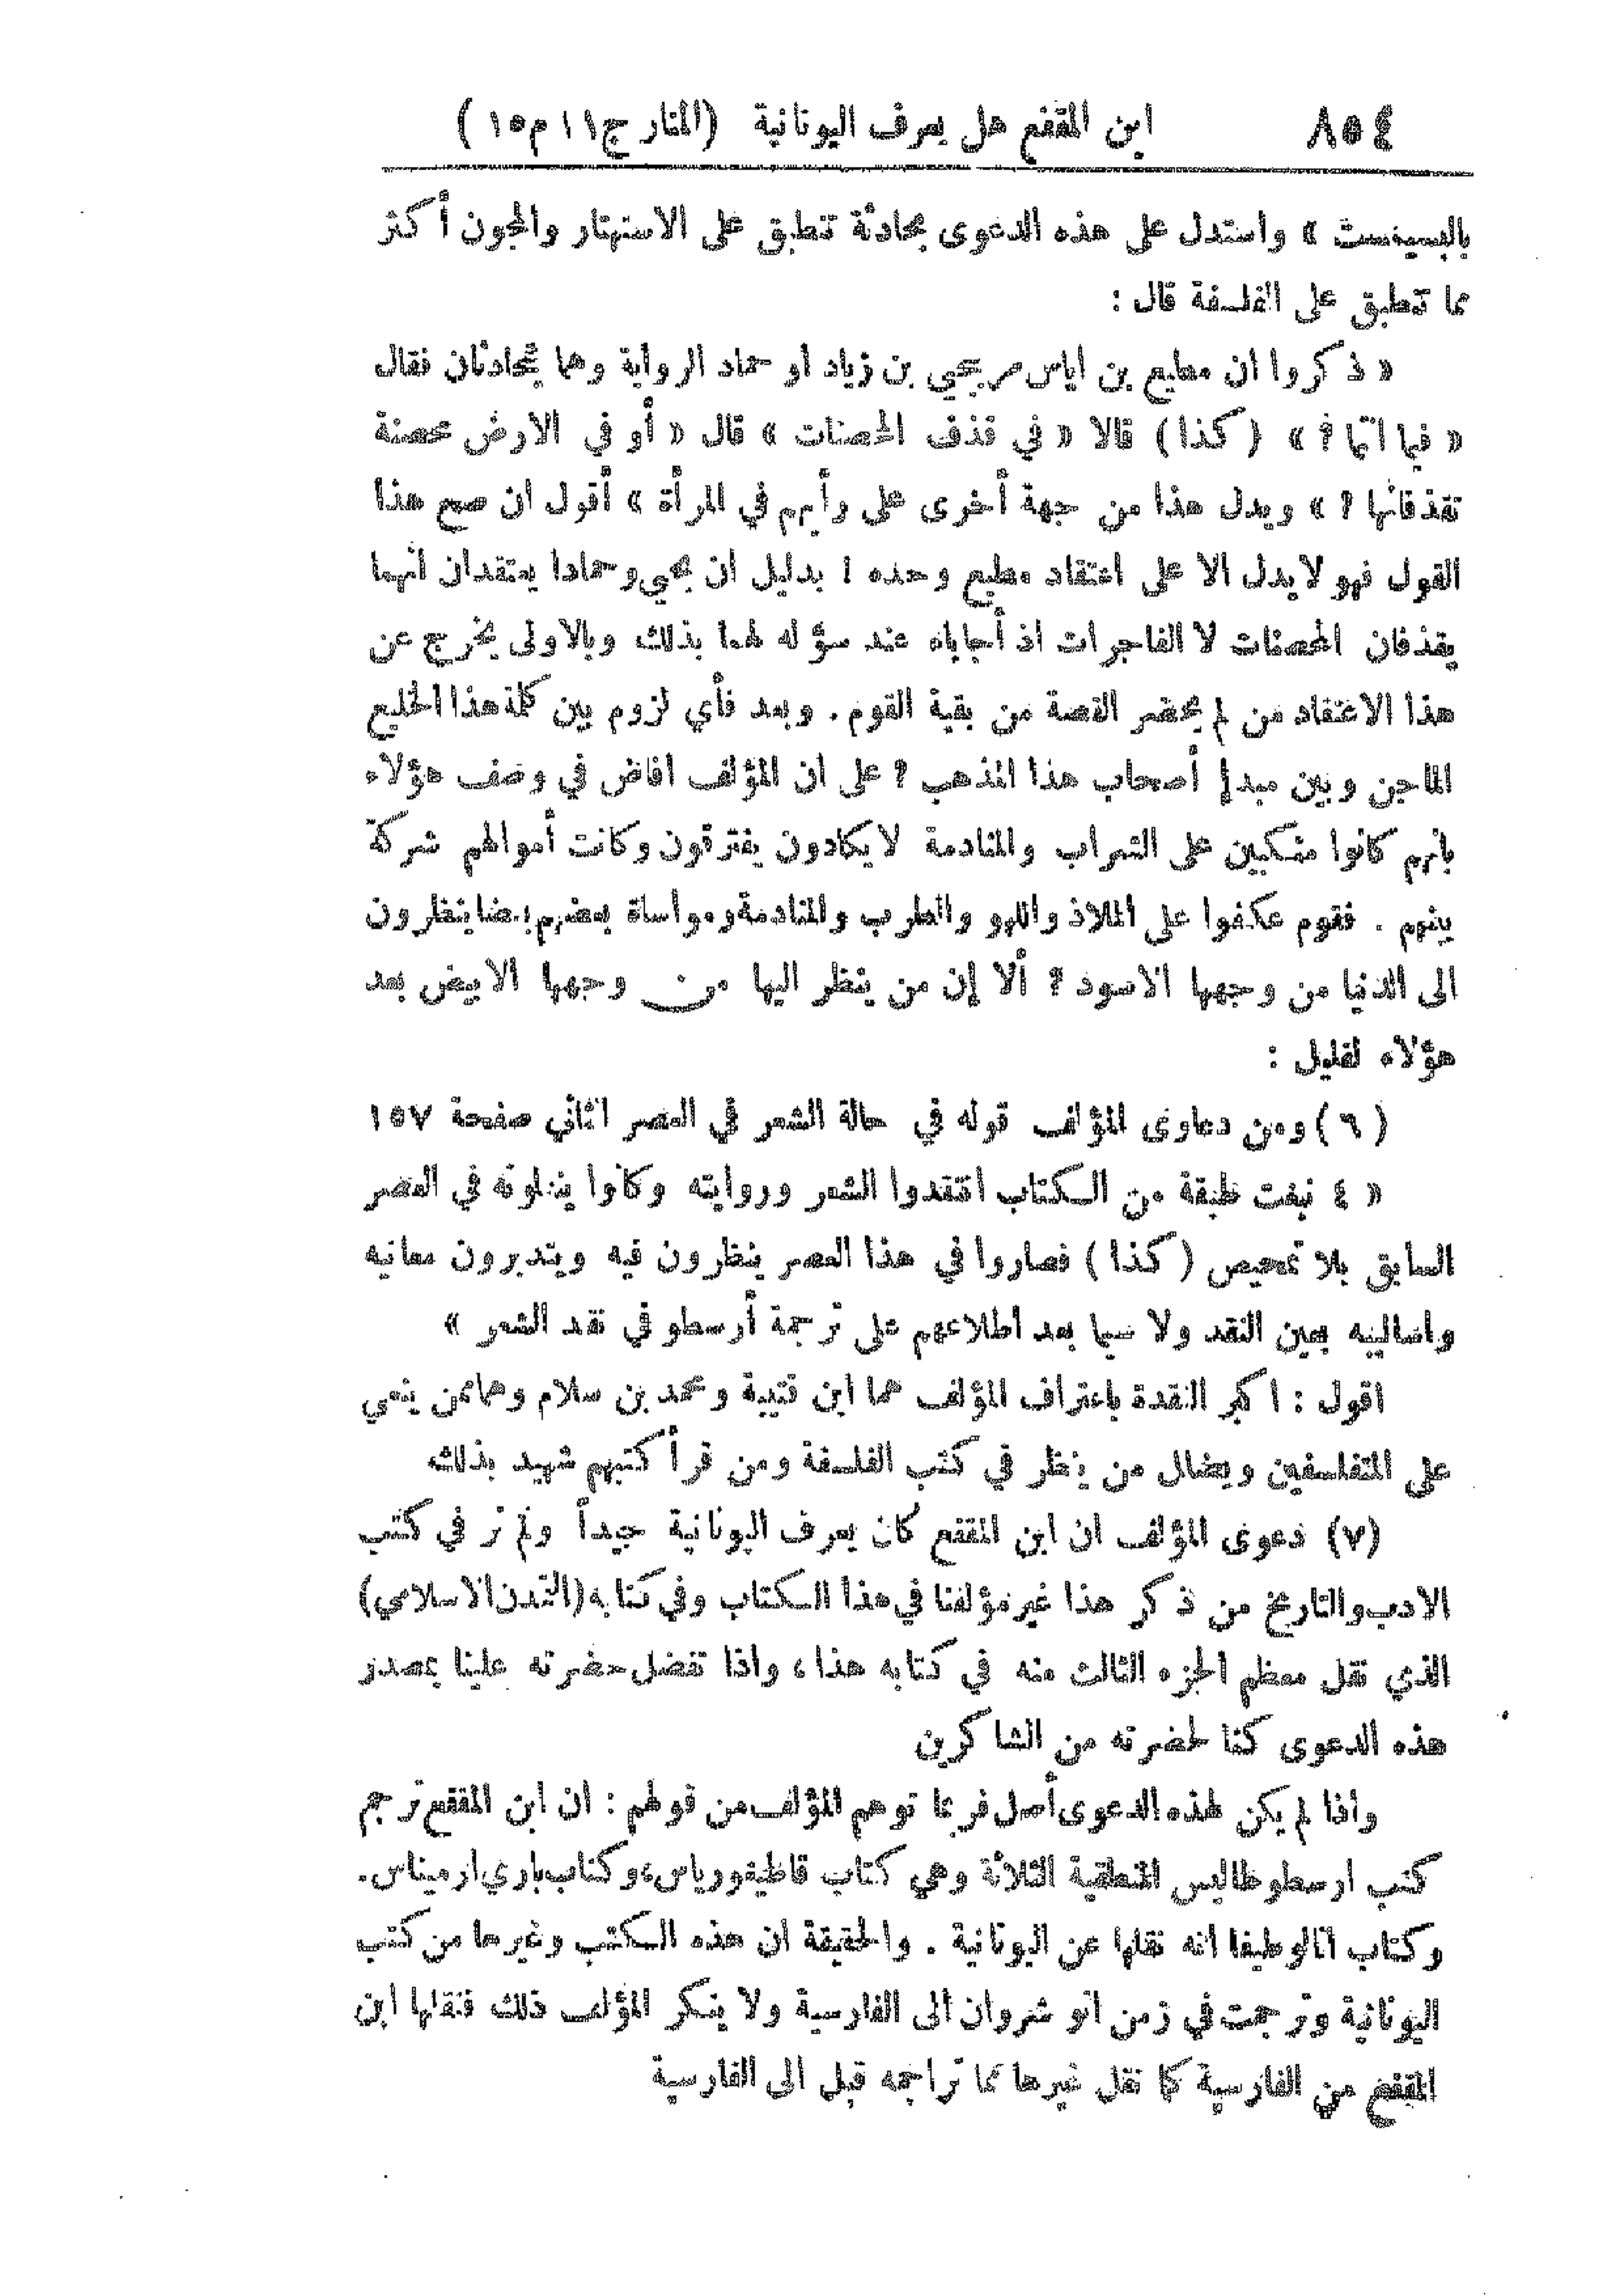 ٨٥٤ ابن المقفع هل يعرف اليونانية (المنار ج١١ م١٥)
بالبسيمست » واستدل على هذه الدعوى بمحادثة تنطبق على الاستهتار والمجون أكثر
مما تنطبق على الفلسفة قال :
« ذكروا ان مطيع بن اياس مر بيحيى بن زياد أو حماد الرواية وهما يتحادثان فقال
« فيما انتما ؟ » (كذا) قالا « في قذف المحصنات » قال « أو في الارض محصنة
تقذفانها ؟ » ويدل هذا من جهة أخرى على رأيهم في المرأة » أقول ان صح هذا
القول فهو لا يدل الا على اعتقاد مطيع وحده ! بدليل ان يحيى وحمادا يعتقدان انهما
يقذفان المحصنات لا الفاجرات اذ أجاباه عند سؤله لهما بذلك وبالاولى يخرج عن
هذا الاعتقاد من لم يحضر القصة من بقية القوم . وبعد فأي لزوم بين كلمة هذا الخليع
الماجن وبين مبدإ أصحاب هذا المذهب ؟ على ان المؤلف افاض في وصف هؤلاء
بانهم كانوا متكبين على الشراب والمنادمة لا يكادون يفترقون وكانت أموالهم شركة
بينهم . فقوم عكفوا على الملاذ واللهو والطرب والمنادمة ومواساة بعضهم بعضا ينظرون
الى الدنيا من وجهها الاسود ؟ ألا إن من ينظر اليها من وجهها الابيض بعد
هؤلاء لقليل :
(٦) ومن دعاوى المؤلف قوله في حالة الشعر في العصر الثاني صفحة ١٥٧
« ٤ نبغت طبقة من الكتاب انتقدوا الشعر وروايته وكانوا ينقلونه في العصر
السابق بلا تمحيص (كذا) فصاروا في هذا العصر ينظرون فيه ويتدبرون معانيه
واساليبه بعين النقد ولا سيما بعد اطلاعهم على ترجمة أرسطو في نقد الشعر »
اقول : اكبر النقدة باعتراف المؤلف هما ابن قتيبة ومحمد بن سلام وهما ممن ينعي
على المتفلسفين ويضلل من ينظر في كتب الفلسفة ومن قرأ كتبهم شهيد بذلك
(٧) دعوى المؤلف ان ابن المقفع كان يعرف اليونانية جيداً ولم نر في كتب
الادب والتاريخ من ذكر هذا غير مؤلفنا في هذا الكتاب وفي كتابه (التمدن الاسلامي)
الذي نقل معظم الجزء الثالث منه في كتابه هذا، واذا تفضل حضرته علينا بمصدر
هذه الدعوى كنا لحضرته من الشاكرين
واذا لم يكن لهذه الدعوى أصل فربما توهم المؤلف من قولهم : ان ابن المقفع ترجم
كتب ارسطوطاليس المنطقية الثلاثة وهي كتاب قاطيغورياس، وكتاب باري ارميناس.
وكتاب انالوطيقا انه نقلها عن اليونانية . والحقيقة ان هذه الكتب وغيرها من كتب
اليونانية وترجمت في زمن انو شروان الى الفارسية ولا ينكر المؤلف ذلك فنقلها ابن
المقفع من الفارسية كما نقل غيرها مما تراجمه قبل الى الفارسية